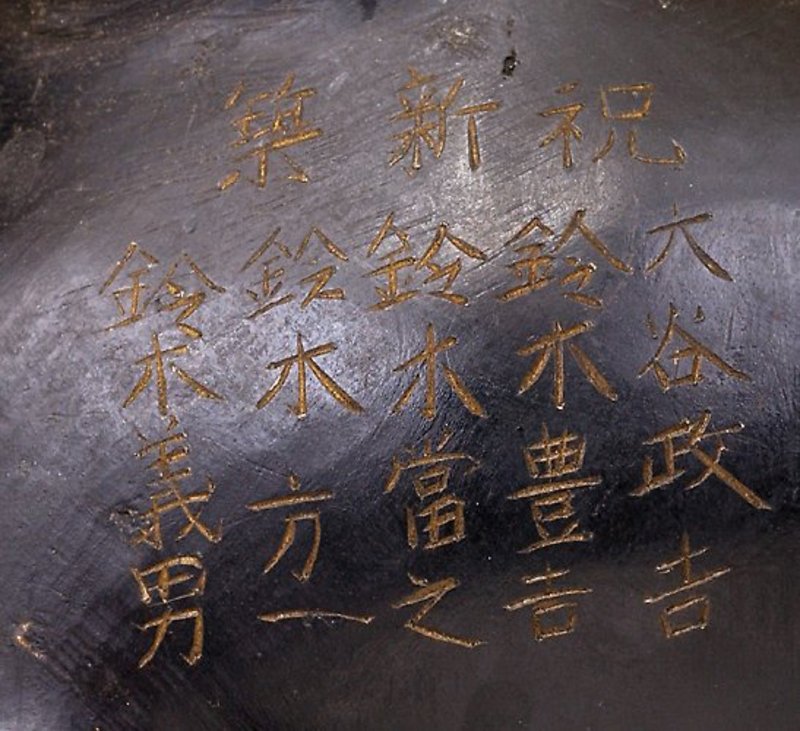 祝新築
大谷政吉
鈴木豊吉
鈴木當之
鈴木方一
鈴木義男